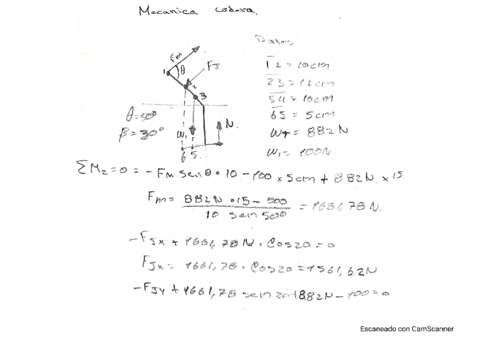 Mecanica cadera.
Datos
Fm
1
θ
FJ
2
3
12 = 10cm
23 = 12cm
54 = 10cm
65 = 5cm
θ=50º
β=30º
W1
N
WT = 882N
W1 = 100N
6 5
ΣM2=0 = -Fm sen θ · 10 - 100 × 5cm + 882N × 15
Fm = 882N · 15 - 500 / 10 sen 50º = 1661,78 N.
-FJx + 1661,78N · Cos20 = 0
FJx = 1661,78 · Cos20 = 1561,62N
-FJy + 1661,78 sen 20 + 882N - 100 = 0
Escaneado con CamScanner